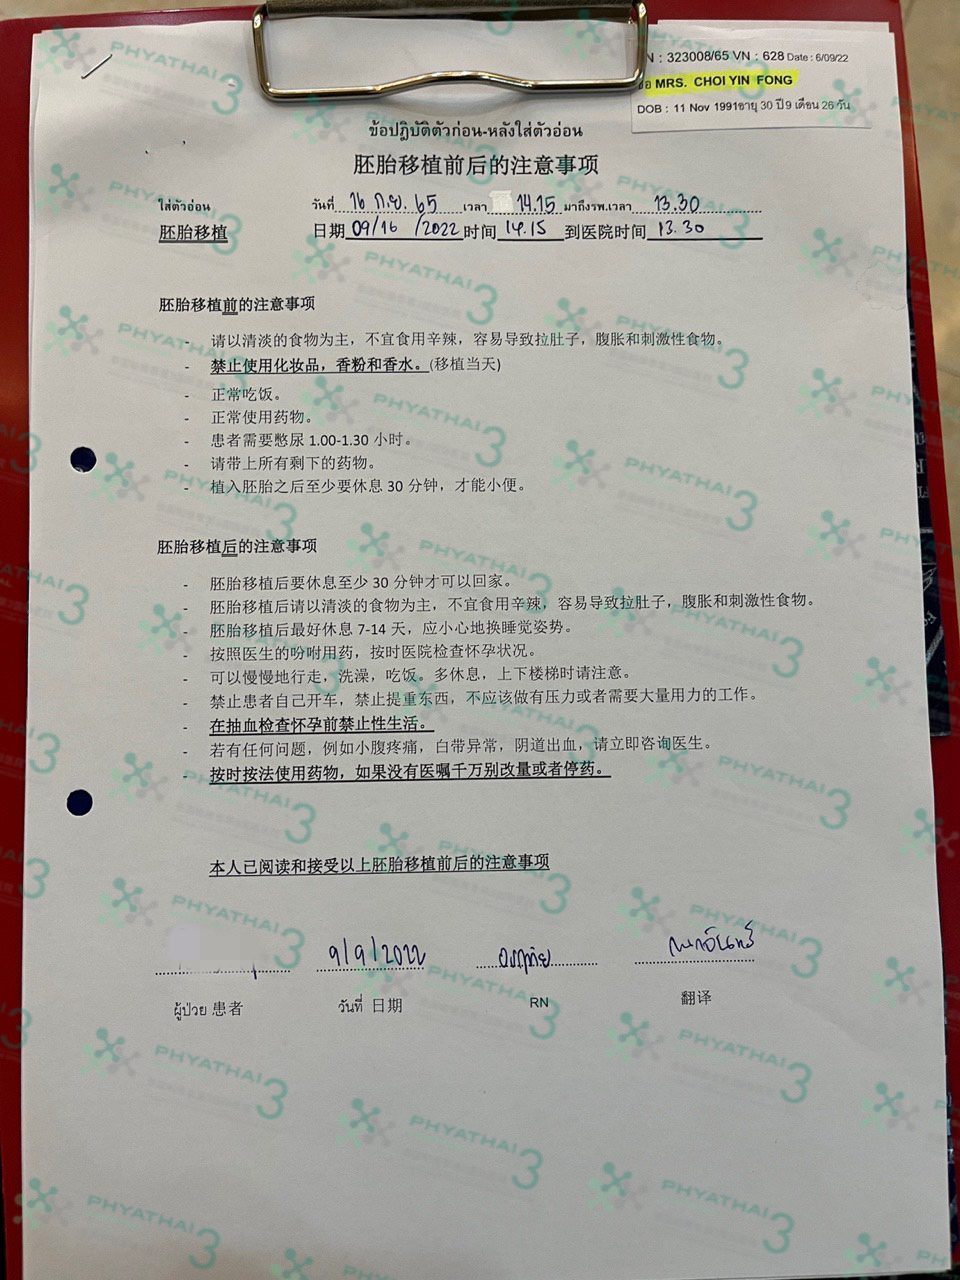 N : 323008/65 VN : 628 Date : 6/09/22
MRS. CHOI YIN FONG
DOB : 11 Nov 1991อายุ 30 ปี 9 เดือน 26 วัน
ข้อปฏิบัติตัวก่อน-หลังใส่ตัวอ่อน
胚胎移植前后的注意事项
ใส่ตัวอ่อน วันที่ 16 ก.ย. 65 เวลา 14.15 มาถึงรพ.เวลา 13.30
胚胎移植 日期 09/16 /2022 时间 14.15 到医院时间 13.30
胚胎移植前的注意事项
- 请以清淡的食物为主，不宜食用辛辣，容易导致拉肚子，腹胀和刺激性食物。
- 禁止使用化妆品，香粉和香水。(移植当天)
- 正常吃饭。
- 正常使用药物。
- 患者需要憋尿 1.00-1.30 小时。
- 请带上所有剩下的药物。
- 植入胚胎之后至少要休息 30 分钟，才能小便。
胚胎移植后的注意事项
- 胚胎移植后要休息至少 30 分钟才可以回家。
- 胚胎移植后请以清淡的食物为主，不宜食用辛辣，容易导致拉肚子，腹胀和刺激性食物。
- 胚胎移植后最好休息 7-14 天，应小心地换睡觉姿势。
- 按照医生的吩咐用药，按时医院检查怀孕状况。
- 可以慢慢地行走，洗澡，吃饭。多休息，上下楼梯时请注意。
- 禁止患者自己开车，禁止提重东西，不应该做有压力或者需要大量用力的工作。
- 在抽血检查怀孕前禁止性生活。
- 若有任何问题，例如小腹疼痛，白带异常，阴道出血，请立即咨询医生。
- 按时按法使用药物，如果没有医嘱千万别改量或者停药。
本人已阅读和接受以上胚胎移植前后的注意事项
9/9/2022
ผู้ป่วย 患者 วันที่ 日期 RN 翻译
PHYATHAI 3